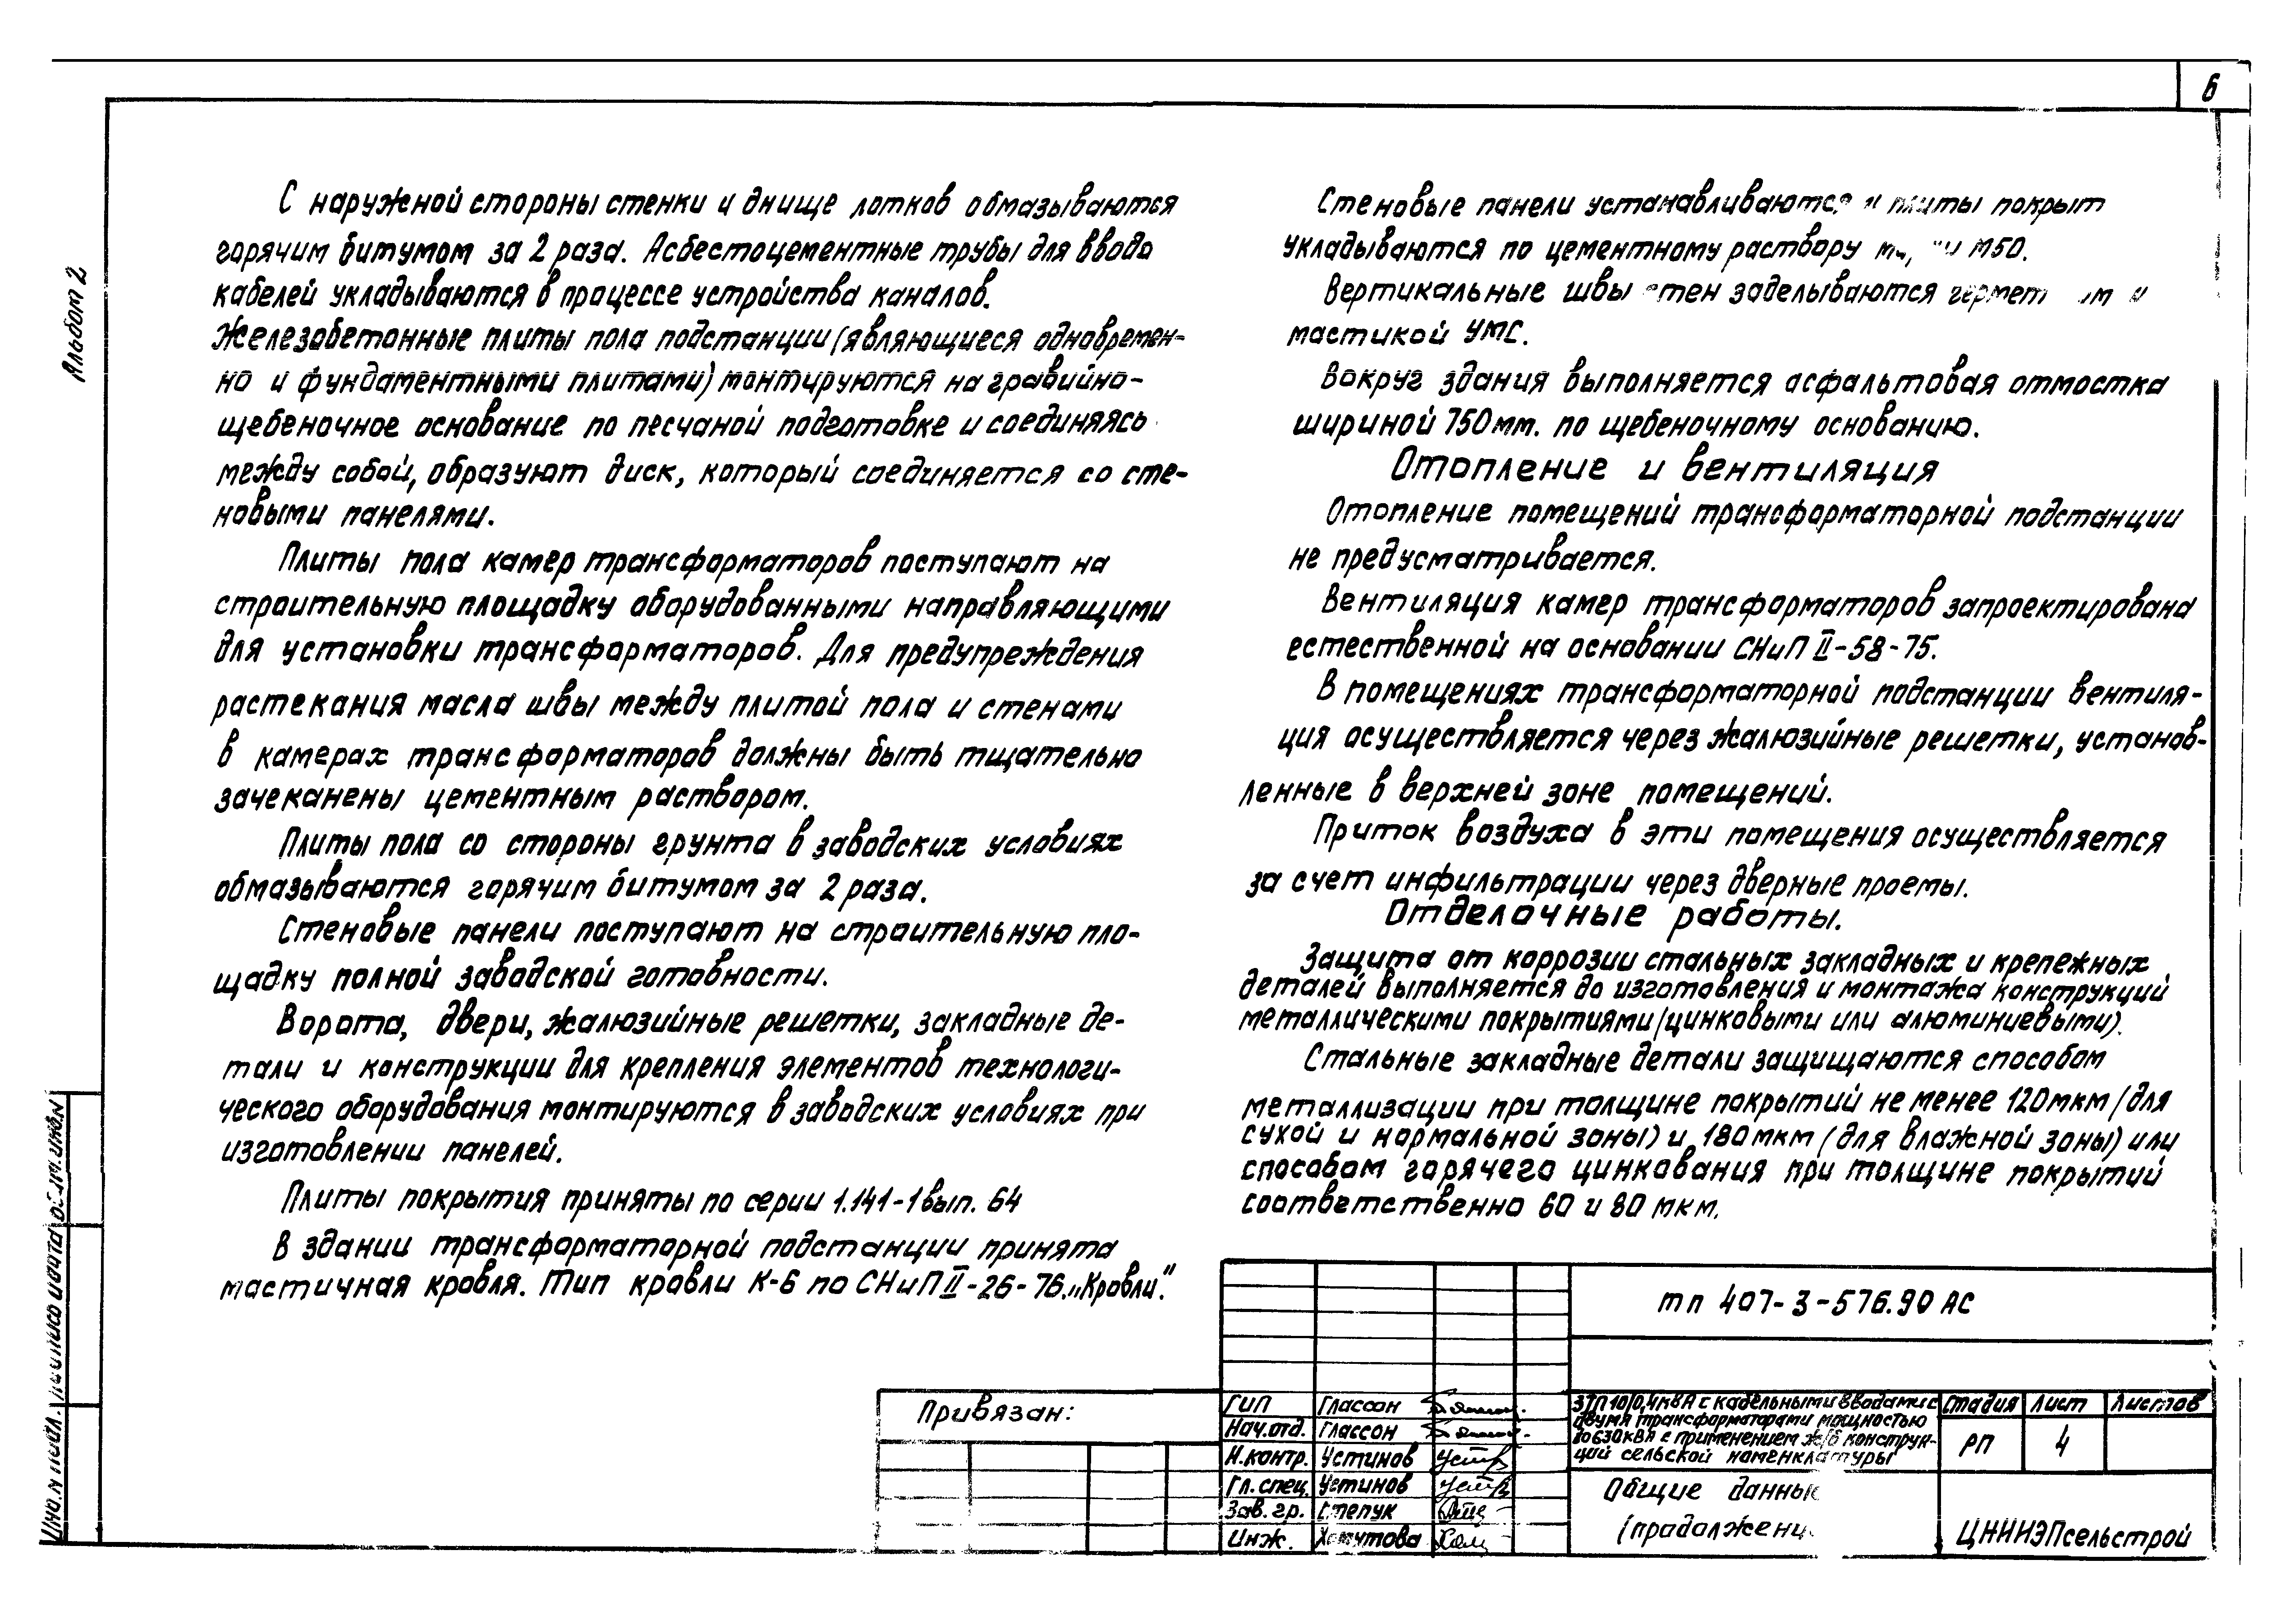 6
Альбом 2
С наружной стороны стенки и днище лотков обмазываются
горячим битумом за 2 раза. Асбестоцементные трубы для ввода
кабелей укладываются в процессе устройства каналов.
Железобетонные плиты пола подстанции (являющиеся одновремен-
но и фундаментными плитами) монтируются на гравийно-
щебеночное основание по песчаной подготовке и соединяясь
между собой, образуют диск, который соединяется со сте-
новыми панелями.
Плиты пола камер трансформаторов поступают на
строительную площадку оборудованными направляющими
для установки трансформаторов. Для предупреждения
растекания масла швы между плитой пола и стенами
в камерах трансформаторов должны быть тщательно
зачеканены цементным раствором.
Плиты пола со стороны грунта в заводских условиях
обмазываются горячим битумом за 2 раза.
Стеновые панели поступают на строительную пло-
щадку полной заводской готовности.
Ворота, двери, жалюзийные решетки, закладные де-
тали и конструкции для крепления элементов технологи-
ческого оборудования монтируются в заводских условиях при
изготовлении панелей.
Плиты покрытия приняты по серии 1.141-1 вып. 64
В здании трансформаторной подстанции принята
мастичная кровля. Тип кровли К-6 по СНиП II-26-76 „Кровли".
Стеновые панели устанавливаются и плиты покрыт
укладываются по цементному раствору М50.
Вертикальные швы стен заделываются и
мастикой УМС.
Вокруг здания выполняется асфальтовая отмостка
шириной 750мм. по щебеночному основанию.
Отопление и вентиляция
Отопление помещений трансформаторной подстанции
не предусматривается.
Вентиляция камер трансформаторов запроектирована
естественной на основании СНиП II-58-75.
В помещениях трансформаторной подстанции вентиля-
ция осуществляется через жалюзийные решетки, установ-
ленные в верхней зоне помещений.
Приток воздуха в эти помещения осуществляется
за счет инфильтрации через дверные проемы.
Отделочные работы.
Защита от коррозии стальных закладных и крепежных
деталей выполняется до изготовления и монтажа конструкций
металлическими покрытиями (цинковыми или алюминиевыми).
Стальные закладные детали защищаются способом
металлизации при толщине покрытий не менее 120мкм (для
сухой и нормальной зоны) и 180мкм (для влажной зоны) или
способом горячего цинкования при толщине покрытий
соответственно 60 и 80 мкм.
тп 407-3-576.90 АС
Привязан:
ГИП Глассон
Нач.отд. Глассон
Н.контр. Устинов
Гл.спец. Устинов
Зав.гр. Степук
Инж. Хомутова
ЗТП 10/0,4кВА с кабельными вводами с
двумя трансформаторами мощностью
до 630кВА с применением ж/б конструк-
ций сельской номенклатуры
Стадия Лист Листов
РП 4
Общие данные
(продолжени
ЦНИИЭПсельстрой
Инв.N подл. Подпись и дата Взам.инв.N